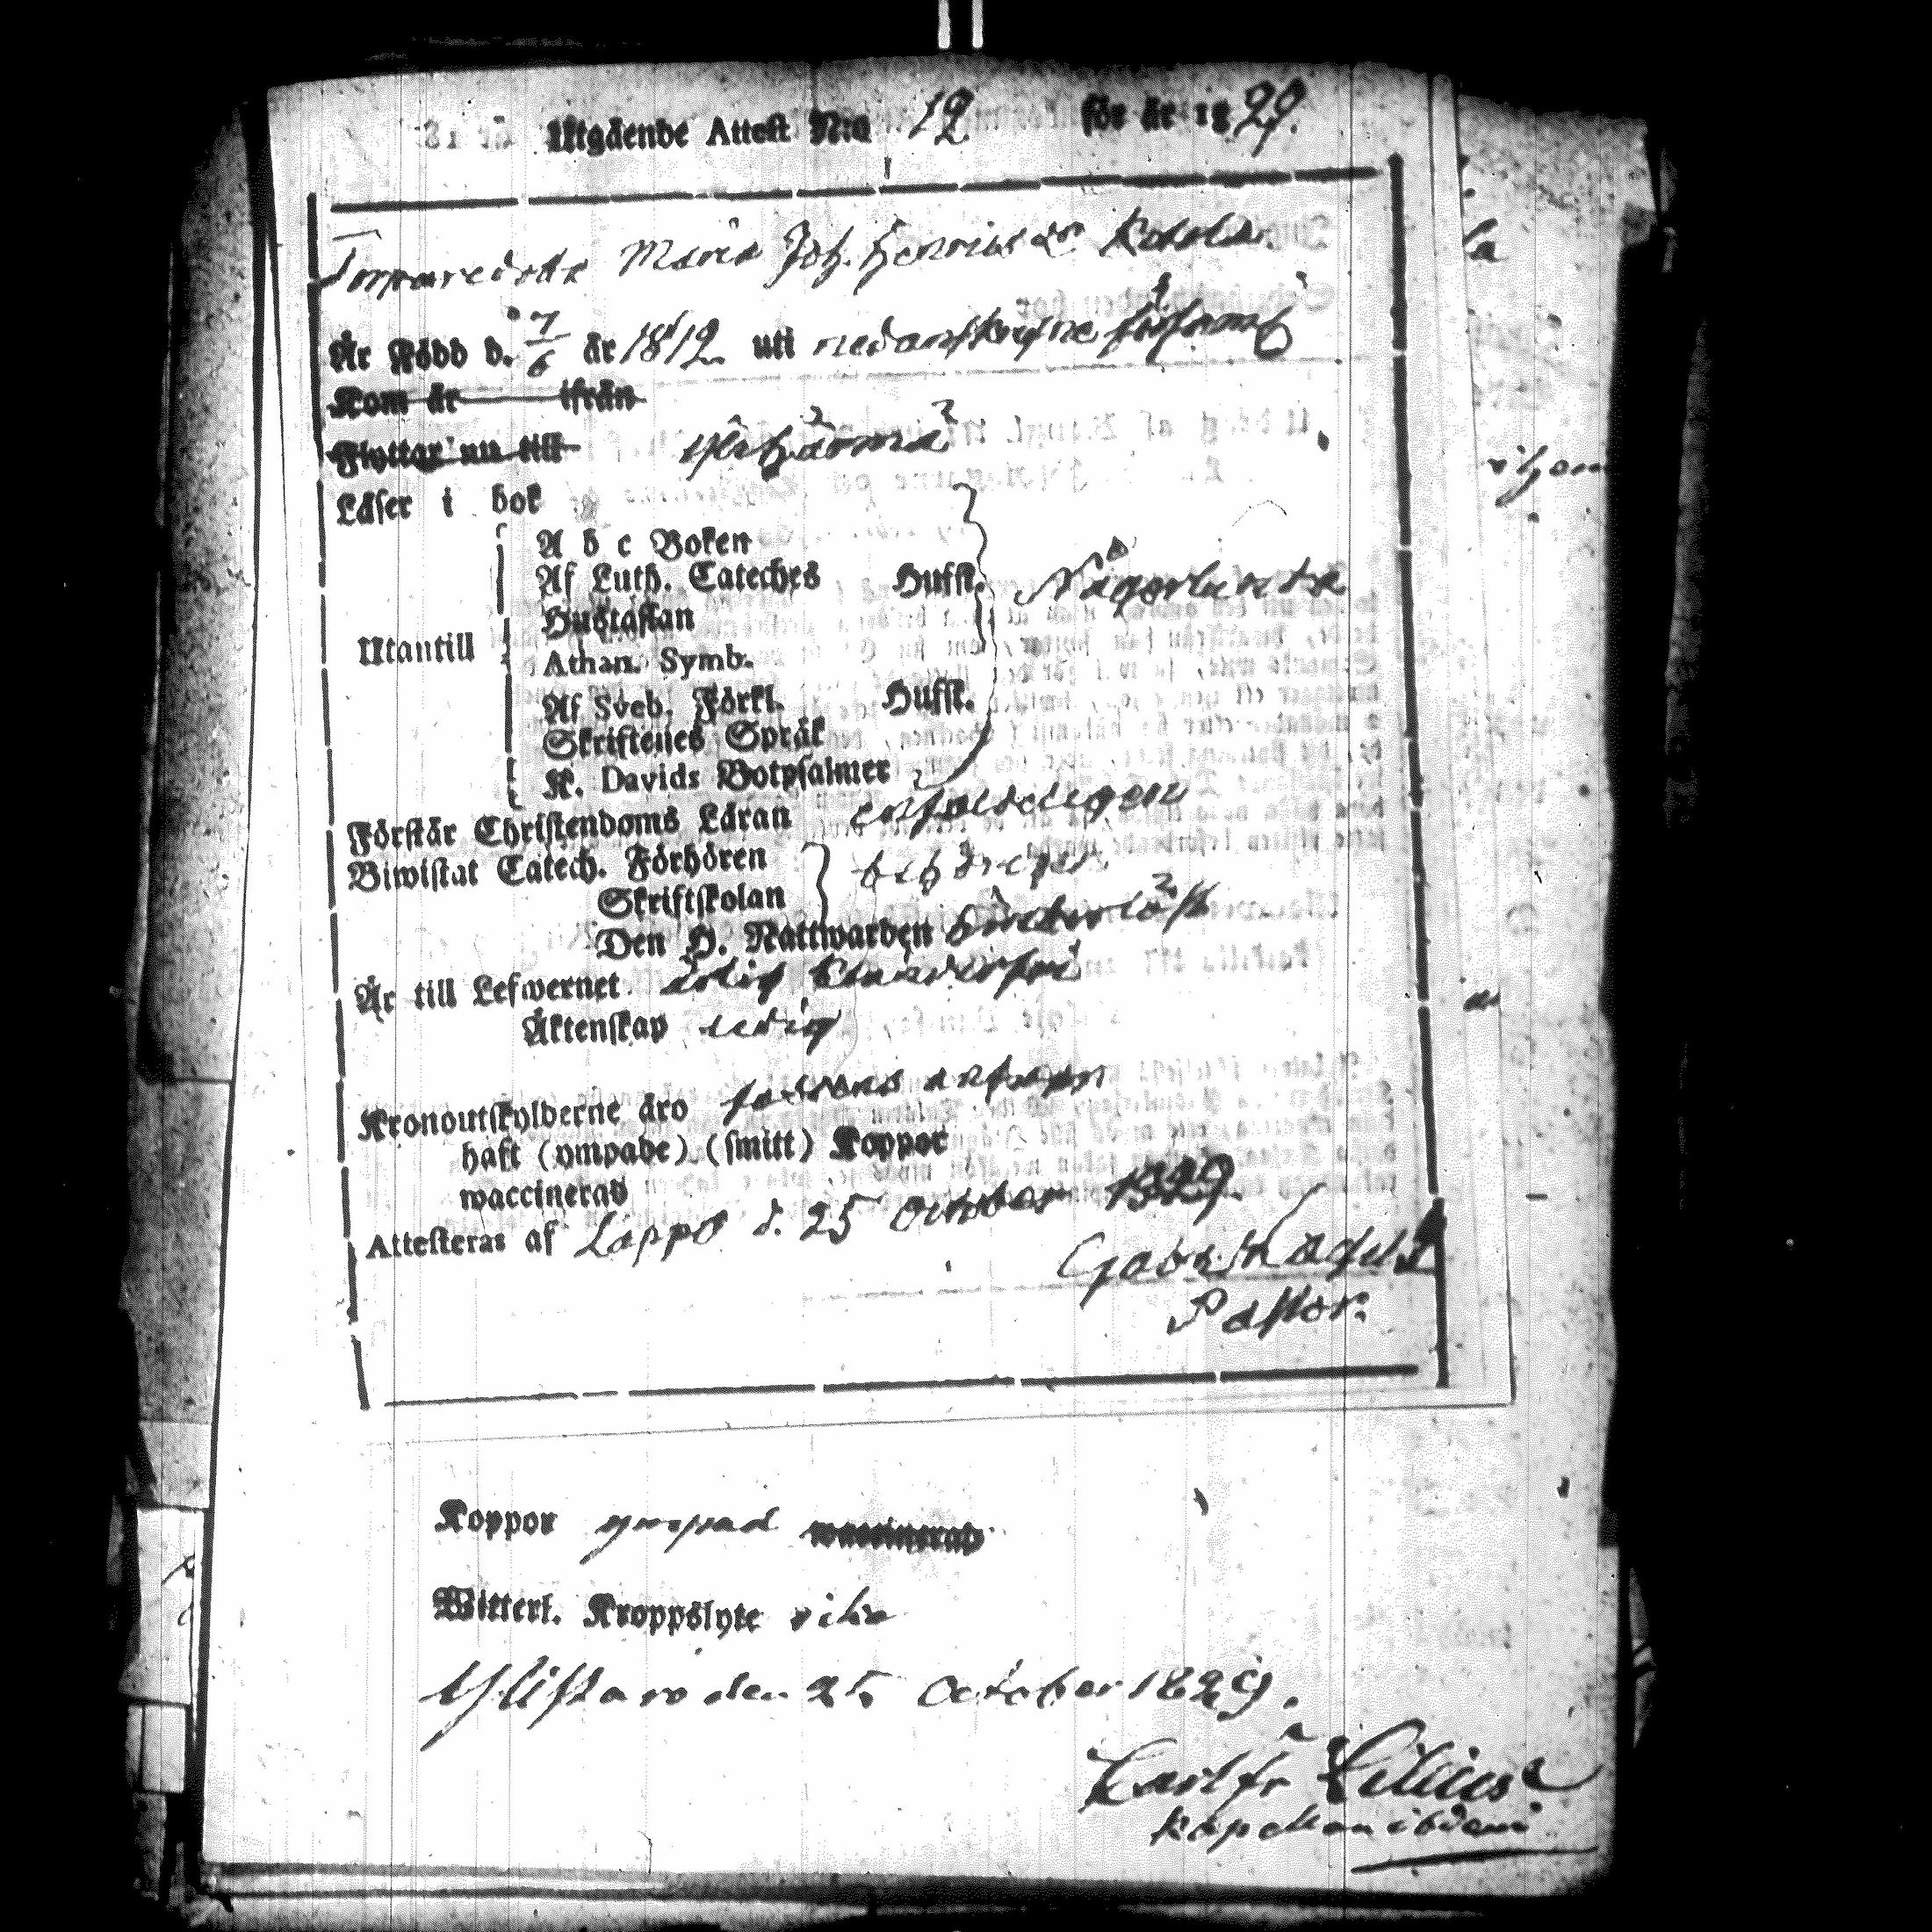 Utgående Attest N:o 12 för år 1829.
Torparedottr Maria Joh. Henriksdr
Är Född d. 7/6 år 1812 uti nedanskrefne församl
Kom år ifrån
Flyttar nu till Ylihärmä
Läser i bok
A b c Boken
Af Luth. Cateches Hufst.
Någorlunda
Hustaflan
Utantill
Athan. Symb.
Af Sveb. Förkl. Hufst.
Skriftenes Språk
K. Davids Botpsalmer
Förstår Christendoms Läran enfaldeligen
Biwistat Catech. Förhören
Skriftskolan
behörigen
Den H. Nattwarden
Är till Lefwernet ärlig
Äktenskap ledig
Kronoutskylderne äro
haft (ympade) (smitt) Koppor
waccinerad
Attesteras af Lappo d. 25 October 1829.
Pastor.
Koppor ympad waccinerad
Witterl. Kroppslyte
Ylistaro den 25 October 1829.
Carl Fr
Kapellan ibidem
la